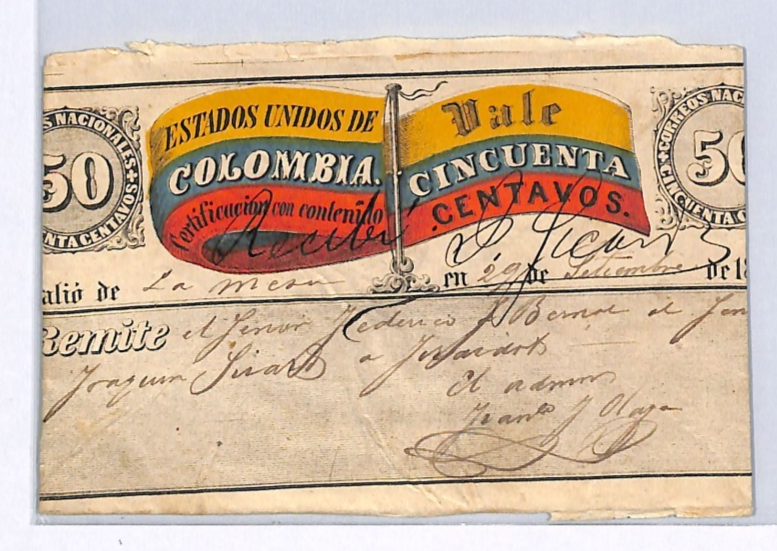 S NACIONALES
50
NTA CENTAVOS
ESTADOS UNIDOS DE
COLOMBIA.
Certificacion con contenido
Vale
CINCUENTA
CENTAVOS.
CORREOS NAC
50
CINCUENTA C
Recibí
alió de La Mesa en 29 de Setiembre de 18
Remite el Señor Federico Bernal al
Joaquin a Jirardot
El admor
Olaya